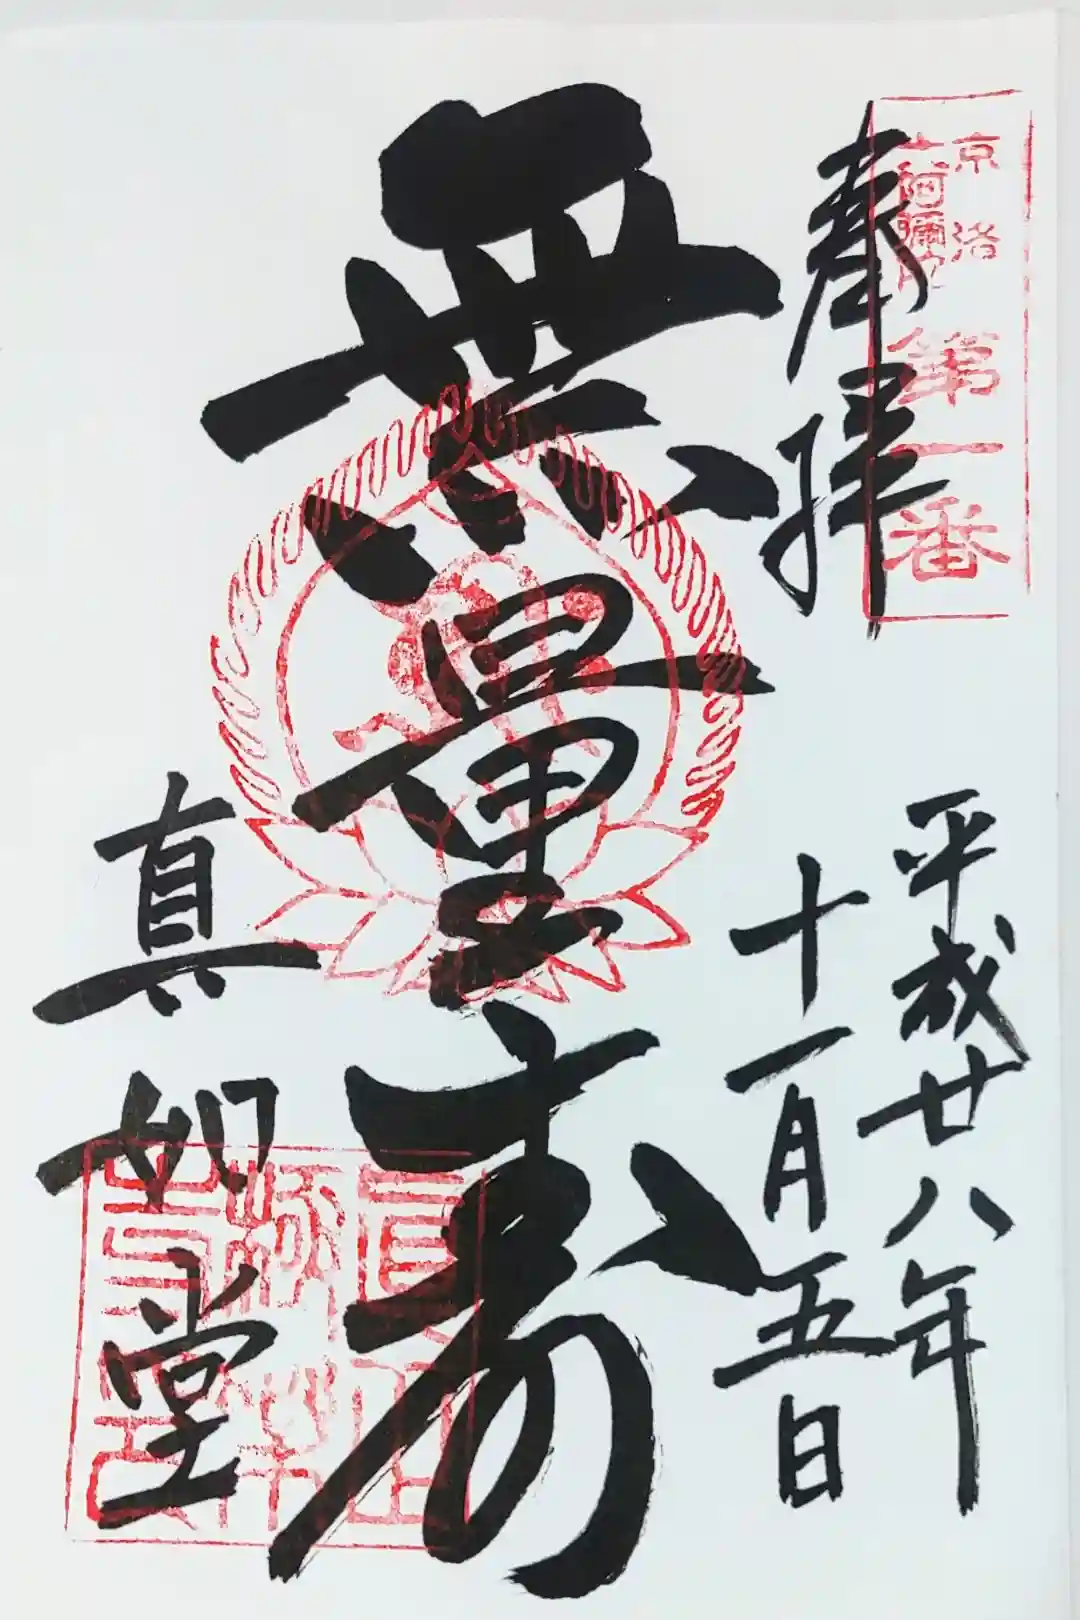 京洛
六阿彌陀
第一番
奉拝
平成廿八年
十一月五日
無量寿
真如堂